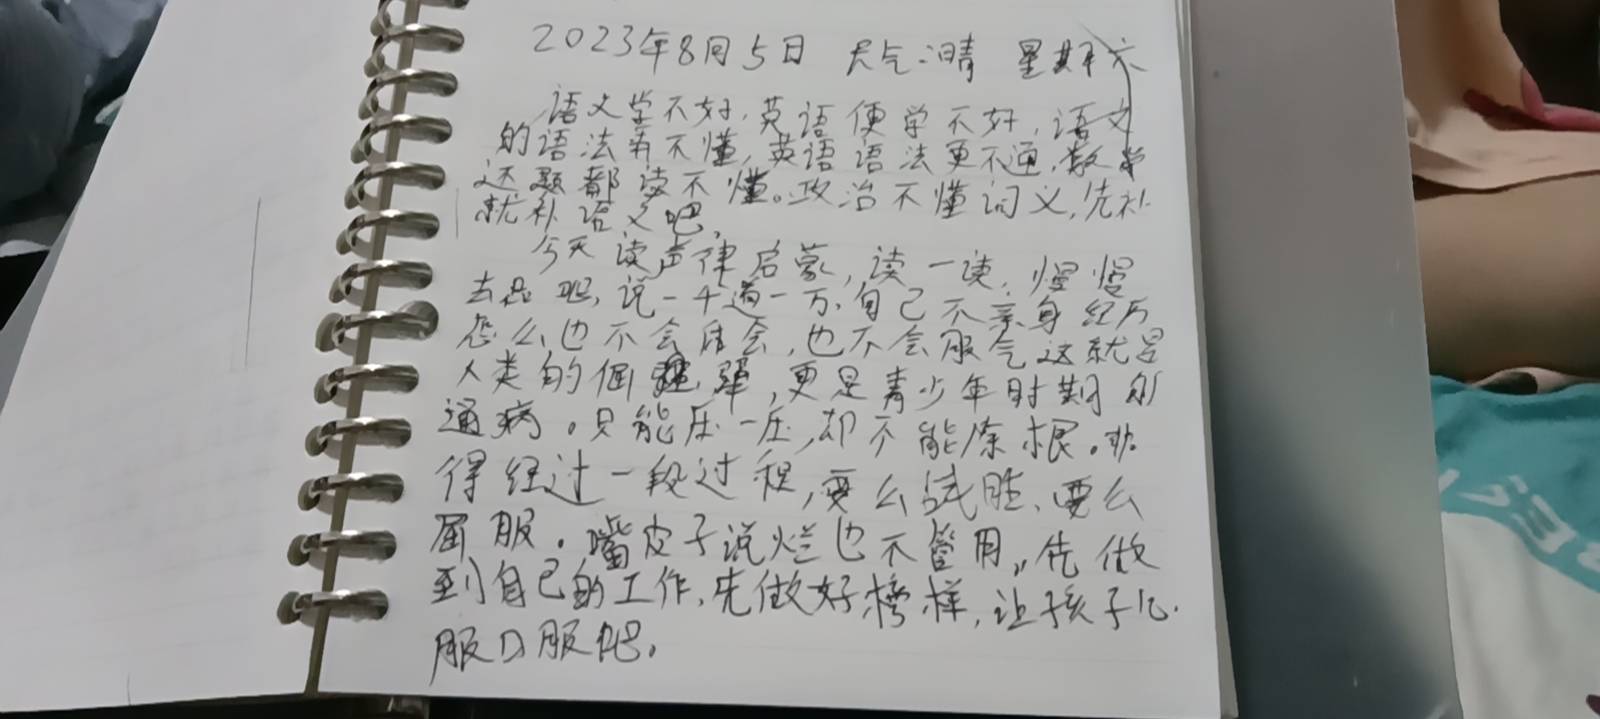 2023年8月5日 天气:晴 星期六
语文学不好,英语便学不好,语文
的语法弄不懂,英语语法更不通,数学
连题都读不懂。政治不懂词义,先补
就补语文吧,
今天读声律启蒙,读一读,慢慢
去品吧,说一千道一万,自己不亲身经历
怎么也不会体会,也不会服气这就是
人类的倔,更是青少年时期的
通病。只能压一压,却不能除根。非
得经过一段过程,要么战胜、要么
屈服。嘴皮子说烂也不管用,先做
到自己的工作,先做好榜样,让孩子心
服口服吧。